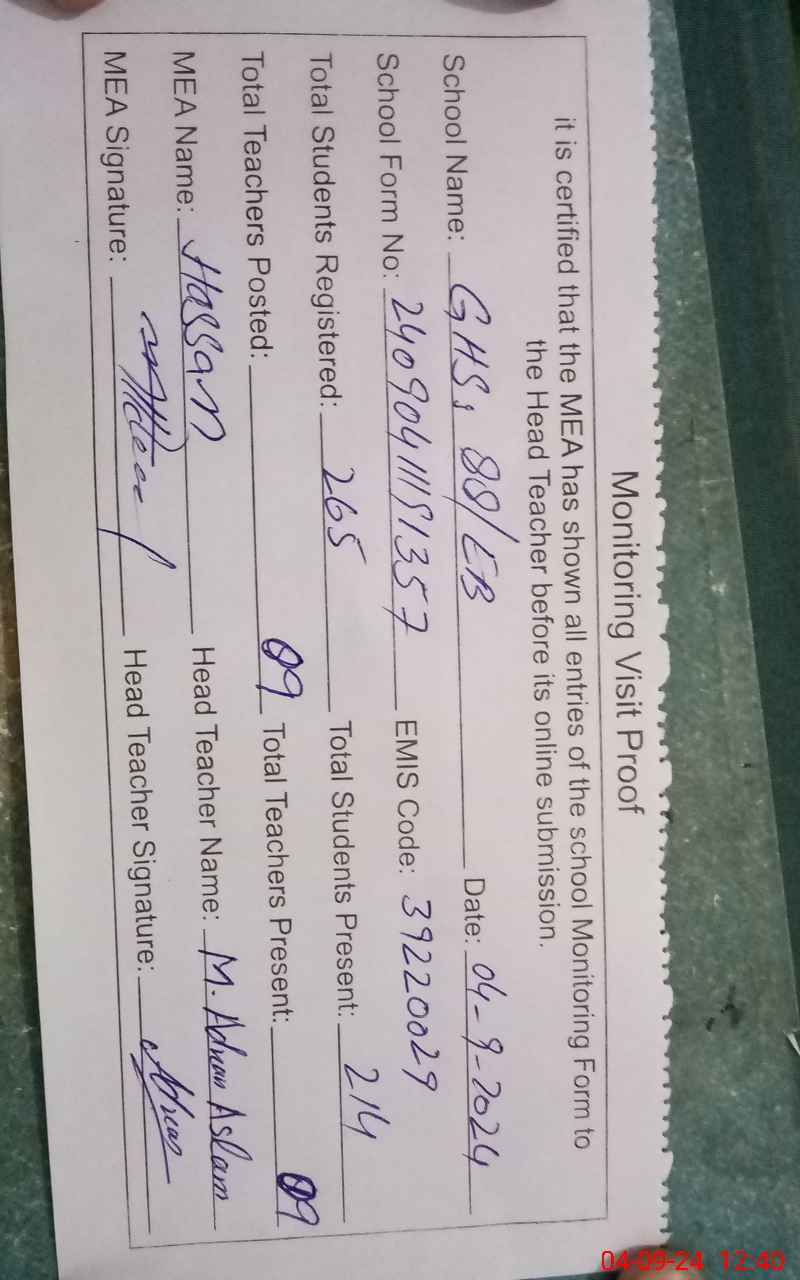 Monitoring Visit Proof
it is certified that the MEA has shown all entries of the school Monitoring Form to
the Head Teacher before its online submission.
School Name: GHS, 88/EB Date: 04-9-2024
School Form No: 24090411151357 EMIS Code: 39220029
Total Students Registered: 265 Total Students Present: 214
Total Teachers Posted: 09 Total Teachers Present: 09
MEA Name: Hassan Head Teacher Name: M. Adnan Aslam
MEA Signature: Head Teacher Signature: Adnan
04-09-24 12:40